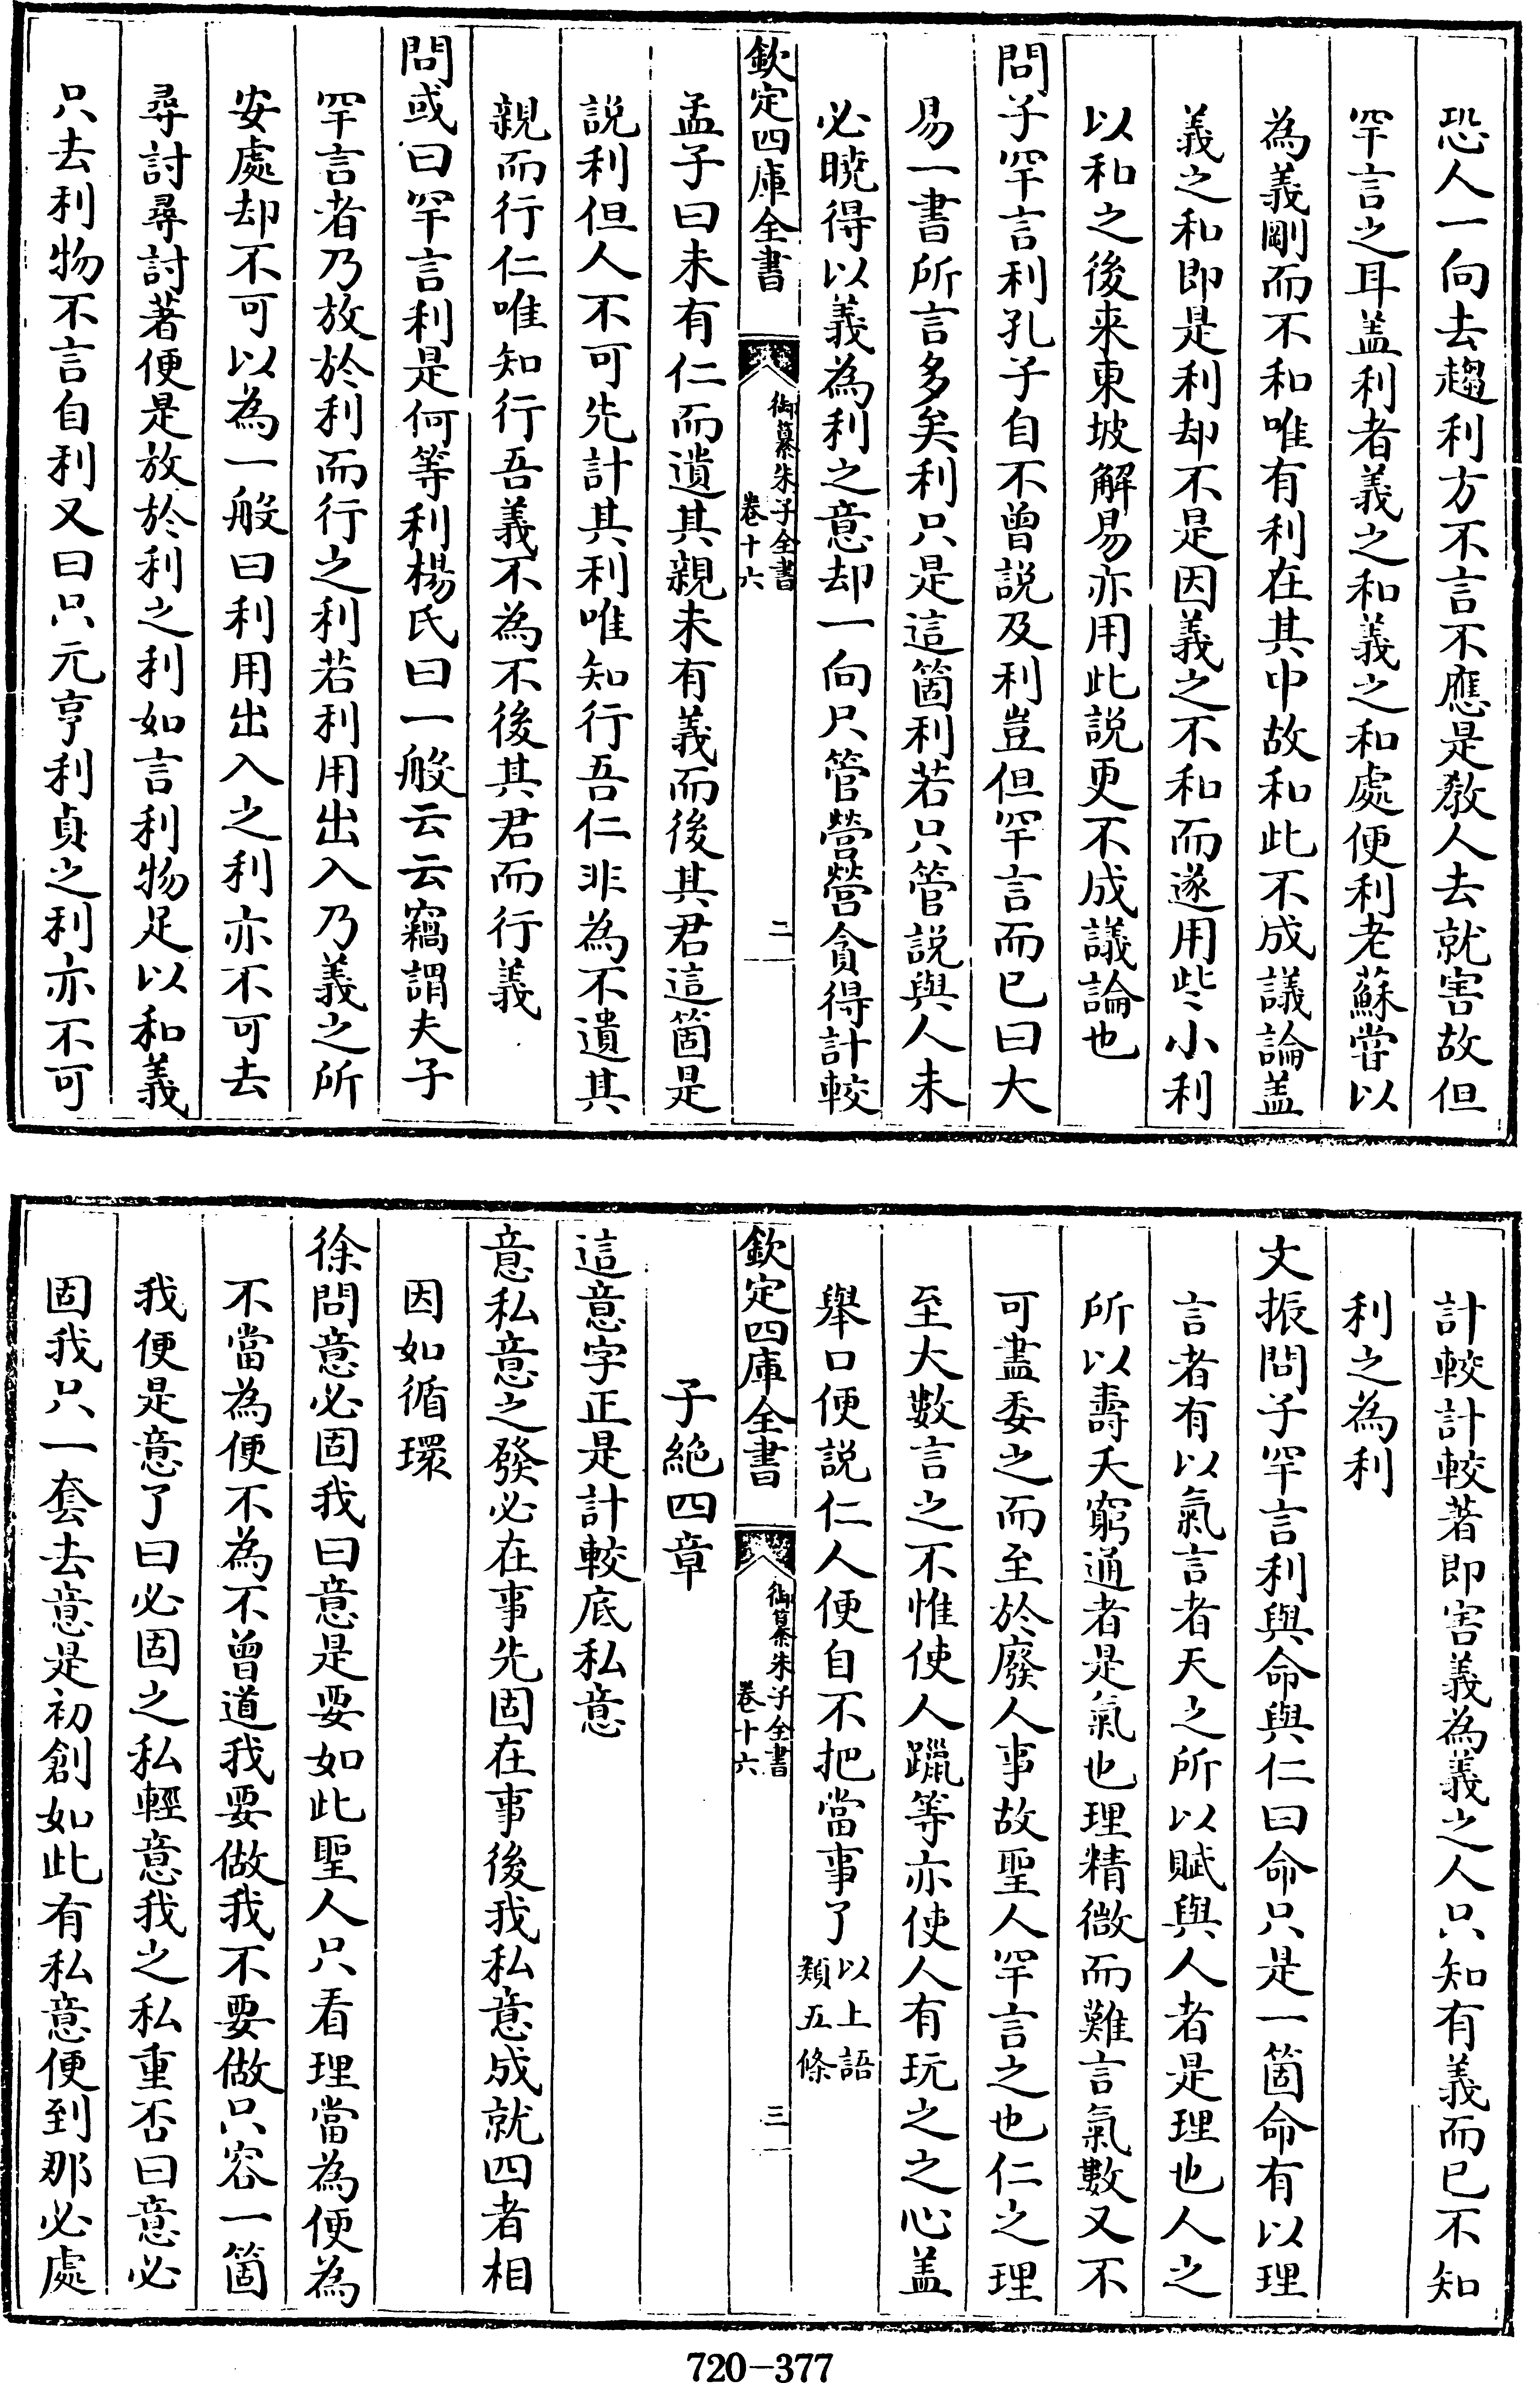 恐人一向去趨利方不言不應是教人去就害故但
罕言之耳盖利者義之和義之和處便利老蘇嘗以
為義剛而不和唯有利在其中故和此不成議論盖
義之和即是利却不是因義之不和而遂用些小利
以和之後来東坡解易亦用此説更不成議論也
問子罕言利孔子自不曾説及利豈但罕言而已曰大
易一書所言多矣利只是這箇利若只管説與人未
必曉得以義為利之意却一向只管營營貪得計較
欽定四庫全書
御纂朱子全書
卷十六
二
孟子曰未有仁而遺其親未有義而後其君這箇是
説利但人不可先計其利唯知行吾仁非為不遺其
親而行仁唯知行吾義不為不後其君而行義
問或曰罕言利是何等利楊氏曰一般云云竊謂夫子
罕言者乃放於利而行之利若利用出入乃義之所
安處却不可以為一般曰利用出入之利亦不可去
尋討尋討著便是放於利之利如言利物足以和義
只去利物不言自利又曰只元亨利貞之利亦不可
計較計較著即害義為義之人只知有義而已不知
利之為利
文振問子罕言利與命與仁曰命只是一箇命有以理
言者有以氣言者天之所以賦與人者是理也人之
所以壽夭窮通者是氣也理精微而難言氣數又不
可盡委之而至於廢人事故聖人罕言之也仁之理
至大數言之不惟使人躐等亦使人有玩之之心盖
舉口便説仁人便自不把當事了以上語
類五條
欽定四庫全書
御纂朱子全書
卷十六
三
子絶四章
這意字正是計較底私意
意私意之發必在事先固在事後我私意成就四者相
因如循環
徐問意必固我曰意是要如此聖人只看理當為便為
不當為便不為不曾道我要做我不要做只容一箇
我便是意了曰必固之私輕意我之私重否曰意必
固我只一套去意是初創如此有私意便到那必處
720-377